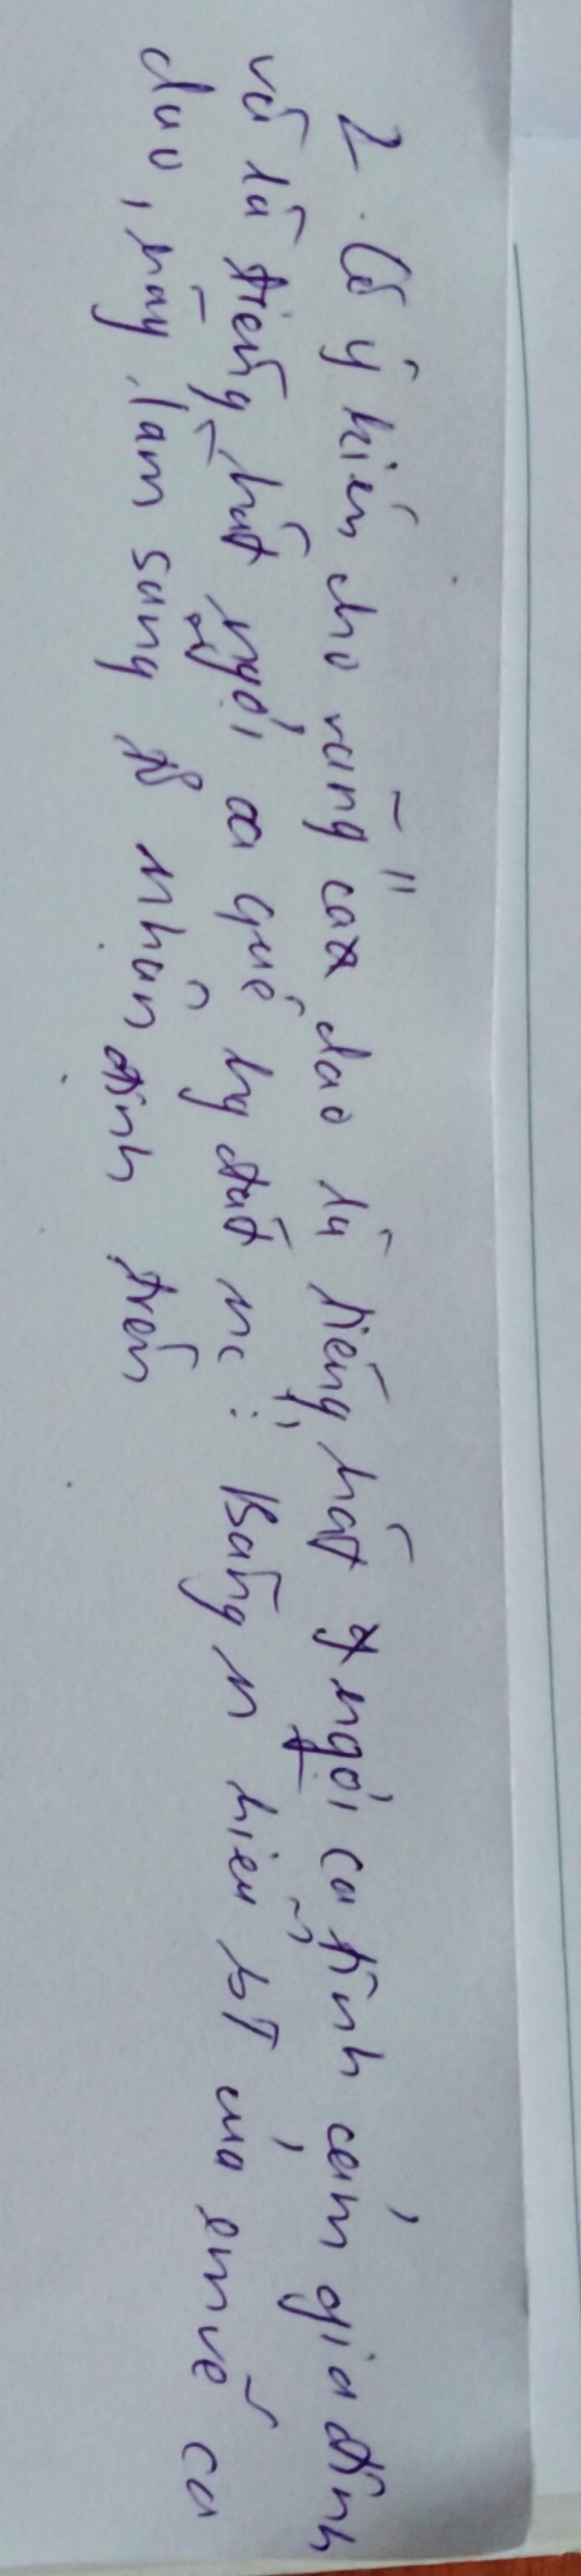 2. Có ý kiến cho rằng "ca dao là tiếng hát ngợi ca tình cảm gia đình
và là tiếng hát ngợi ca quê hg đất nc". Bằng n hiểu bt của em về ca
dao, hãy làm sáng tỏ nhận định trên